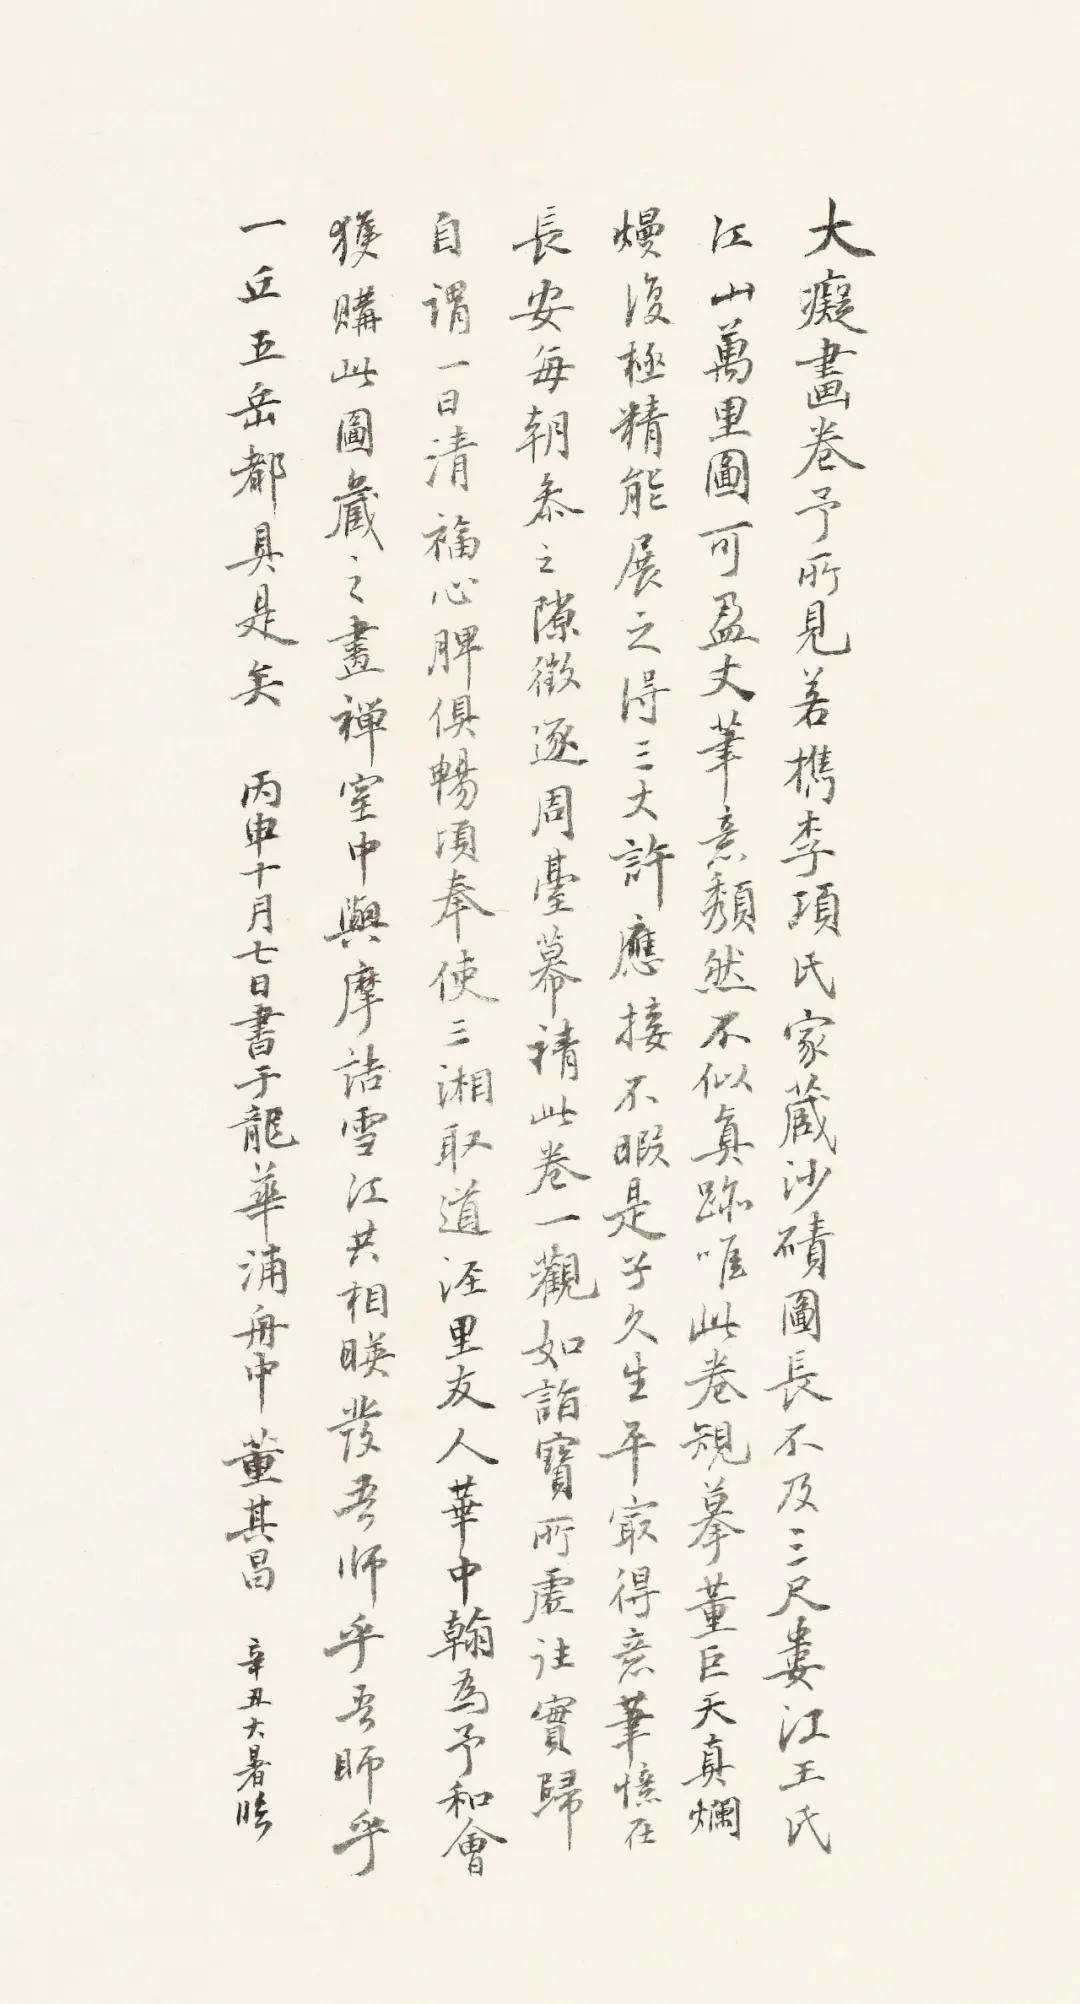 大癡畫卷予所見若檇李項氏家藏沙磧圖長不及三尺婁江王氏
江山萬里圖可盈丈筆意頹然不似真跡唯此卷規摹董巨天真爛
熳復極精能展之得三丈許應接不暇是子久生平最得意筆憶在
長安每朝參之隙徵逐周臺幕請此卷一觀如詣寶所虛往實歸
自謂一日清福心脾俱暢頃奉使三湘取道涇里友人華中翰為予和會
獲購此圖藏之畫禪室中與摩詰雪江共相暎發吾師乎吾師乎
一丘五岳都具是矣 丙申十月七日書于龍華浦舟中 董其昌 辛丑大暑